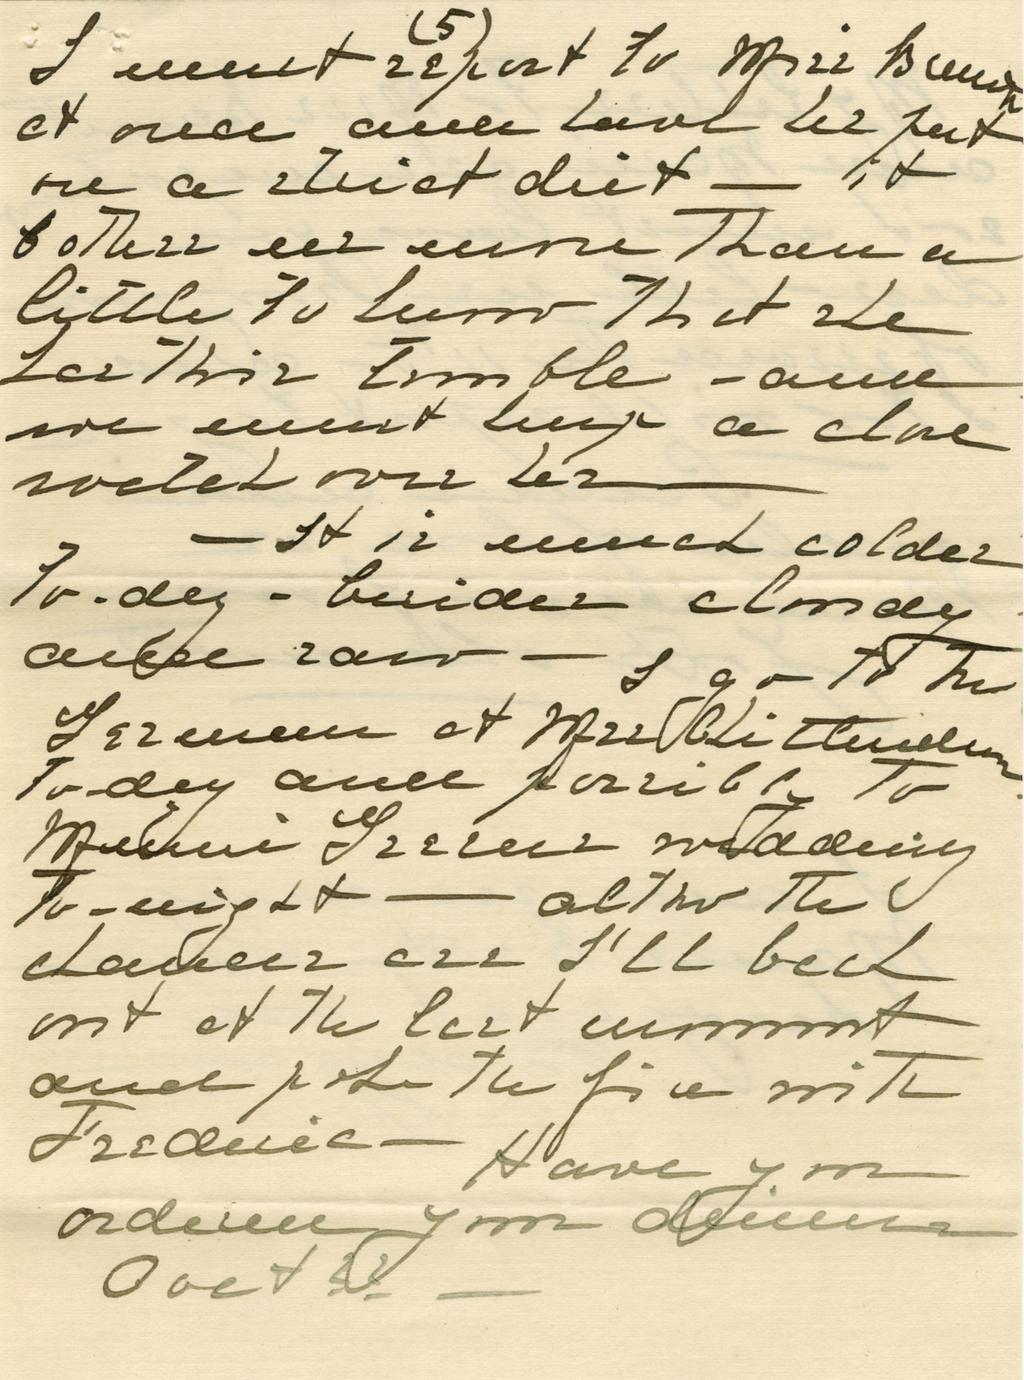 (5)
I must report to Miss Brown
at once and have her put
on a strict diet — it
bothers me more than a
little to know that she
has this trouble - and
we must keep a close
watch over her —
— It is much colder
To-day - besides cloudy
and raw — I go to the
German at Mrs Chittenden
To-day and possibly to
Minnie Greens wedding
To-night — altho the
chances are I'll back
out at the last moment
and poke the fire with
Frederic — Have you
ordered your dinner
Coat —